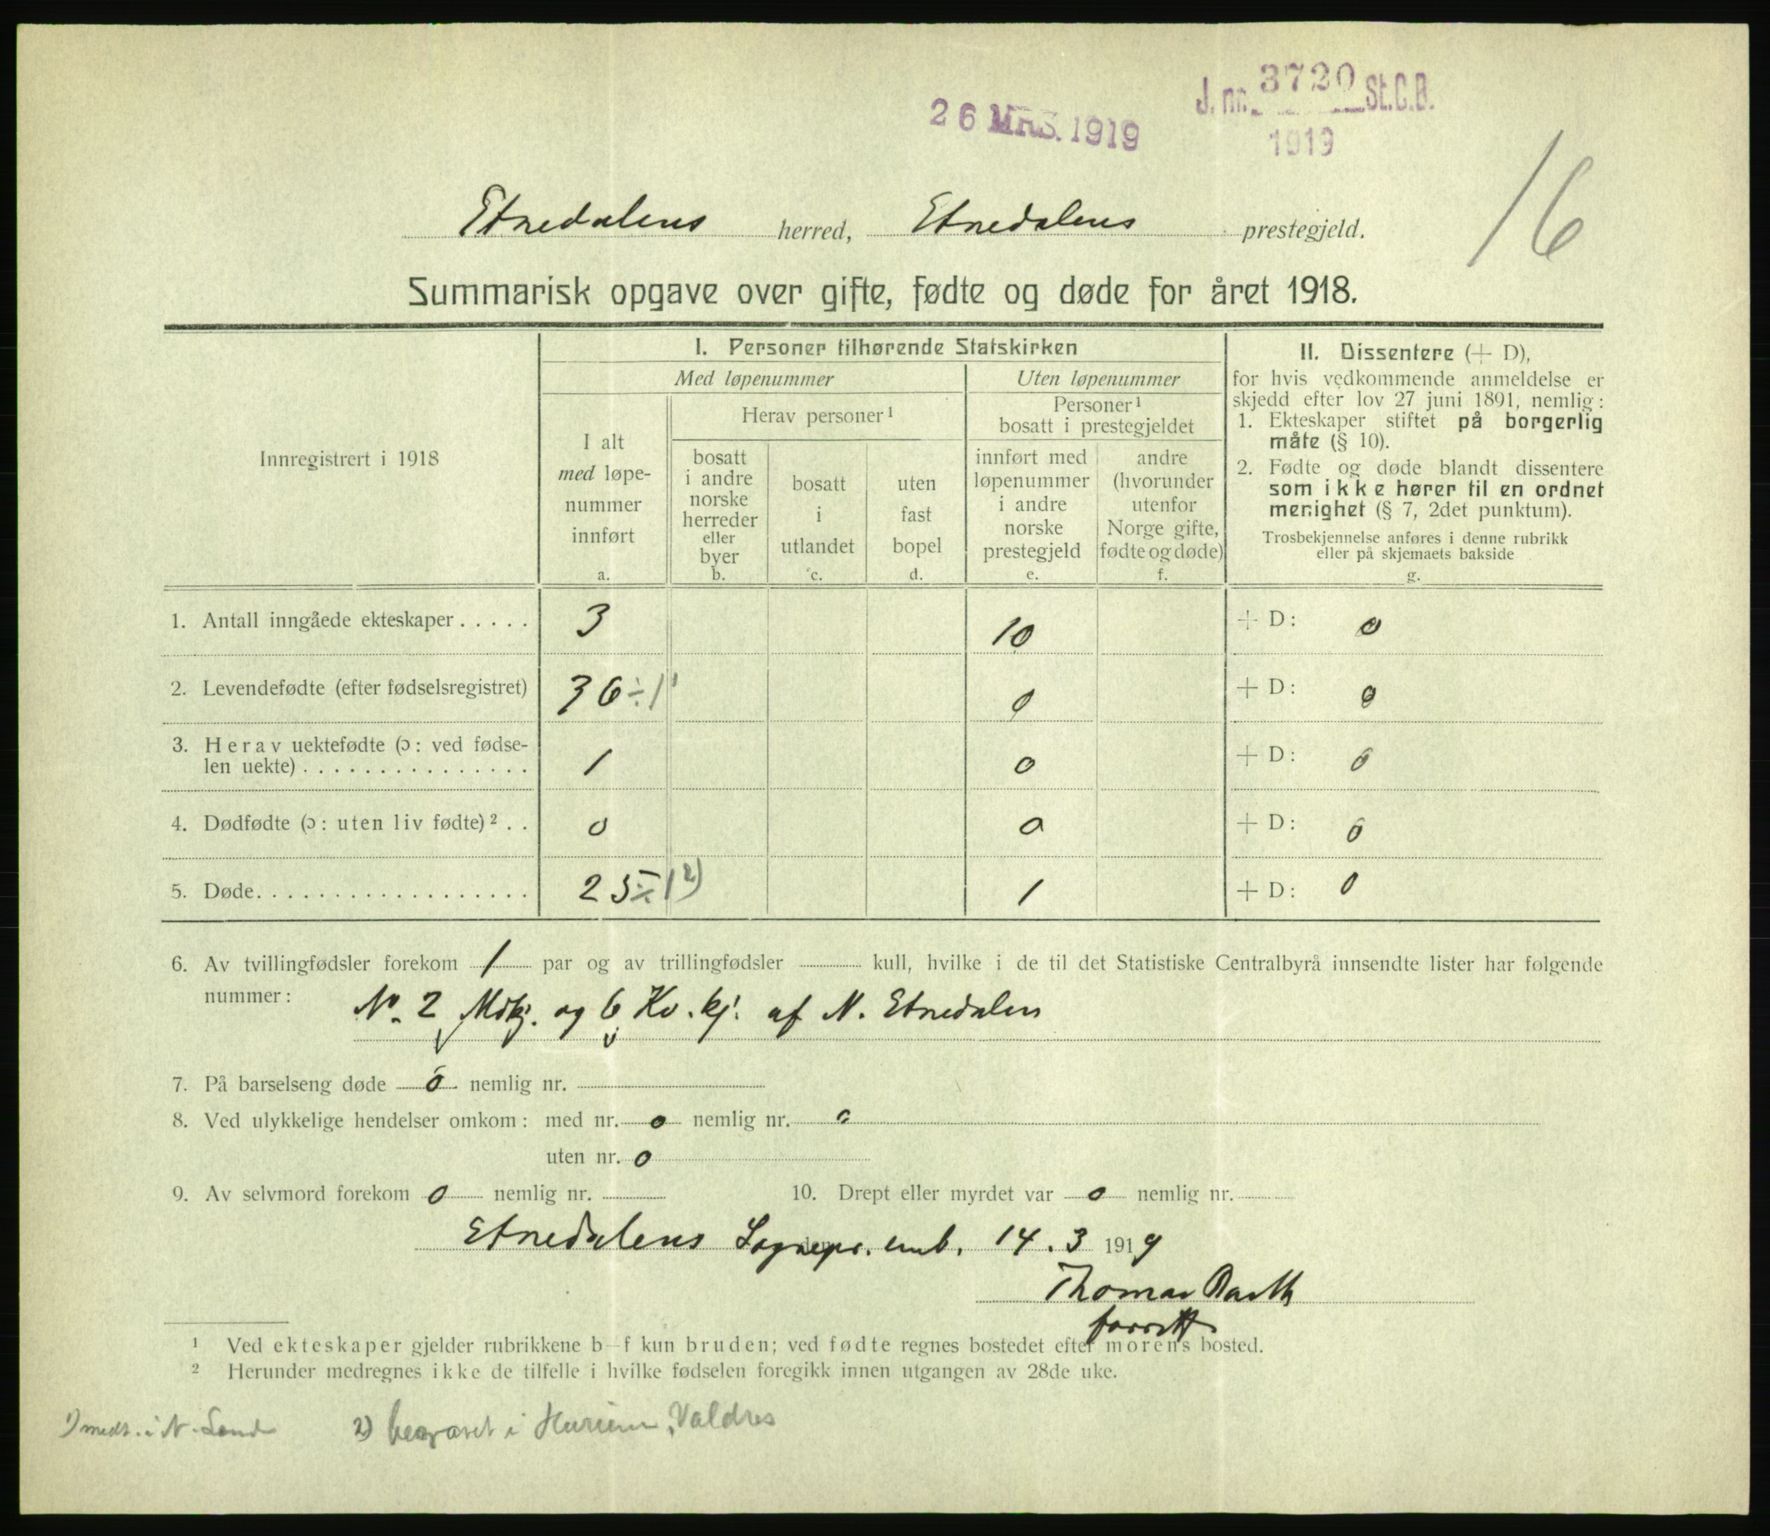 J. nr. 3720 St.C.B.
26 MRS. 1919
1919
16
Etnedalens herred, Etnedalens prestegjeld.
Summarisk opgave over gifte, fødte og døde for året 1918.
Innregistrert i 1918
I. Personer tilhørende Statskirken
Med løpenummer
Uten løpenummer
I alt
med løpe-
nummer
innført
a.
Herav personer ¹
bosatt
i andre
norske
herreder
eller
byer
b.
bosatt
i
utlandet
c.
uten
fast
bopel
d.
Personer ¹
bosatt i prestegjeldet
innført med
løpenummer
i andre
norske
prestegjeld
e.
andre
(hvorunder
utenfor
Norge gifte,
fødte og døde)
f.
II. Dissentere (+ D),
for hvis vedkommende anmeldelse er
skjedd efter lov 27 juni 1891, nemlig:
1. Ekteskaper stiftet på borgerlig
måte (§ 10).
2. Fødte og døde blandt dissentere
som ikke hører til en ordnet
menighet (§ 7, 2det punktum).
Trosbekjennelse anføres i denne rubrikk
eller på skjemaets bakside
g.
1. Antall inngåede ekteskaper . . . . . 3 10 + D: 0
2. Levendefødte (efter fødselsregistret) 36 ÷ 1¹ 0 + D: 0
3. Herav uektefødte (ɔ: ved fødse-
len uekte) . . . . . . . . . . . . . . . 1 0 + D: 0
4. Dødfødte (ɔ: uten liv fødte) ² . . 0 0 + D: 0
5. Døde. . . . . . . . . . . . . . . . . . 25 ÷ 1 ²) 1 + D: 0
6. Av tvillingfødsler forekom 1 par og av trillingfødsler kull, hvilke i de til det Statistiske Centralbyrå innsendte lister har følgende
nummer: No. 2 Mdkj. og 6 Kv. kj. af N. Etnedalen
7. På barselseng døde 0 nemlig nr.
8. Ved ulykkelige hendelser omkom: med nr. 0 nemlig nr. 0
uten nr. 0
9. Av selvmord forekom 0 nemlig nr. 10. Drept eller myrdet var 0 nemlig nr.
Etnedalens Sognepr. emb. 14. 3 1919
Thomas Barth
¹ Ved ekteskaper gjelder rubrikkene b–f kun bruden; ved fødte regnes bostedet efter morens bosted.
² Herunder medregnes ikke de tilfelle i hvilke fødselen foregikk innen utgangen av 28de uke.
1) medt. i N. Land 2) begravet i Valdres